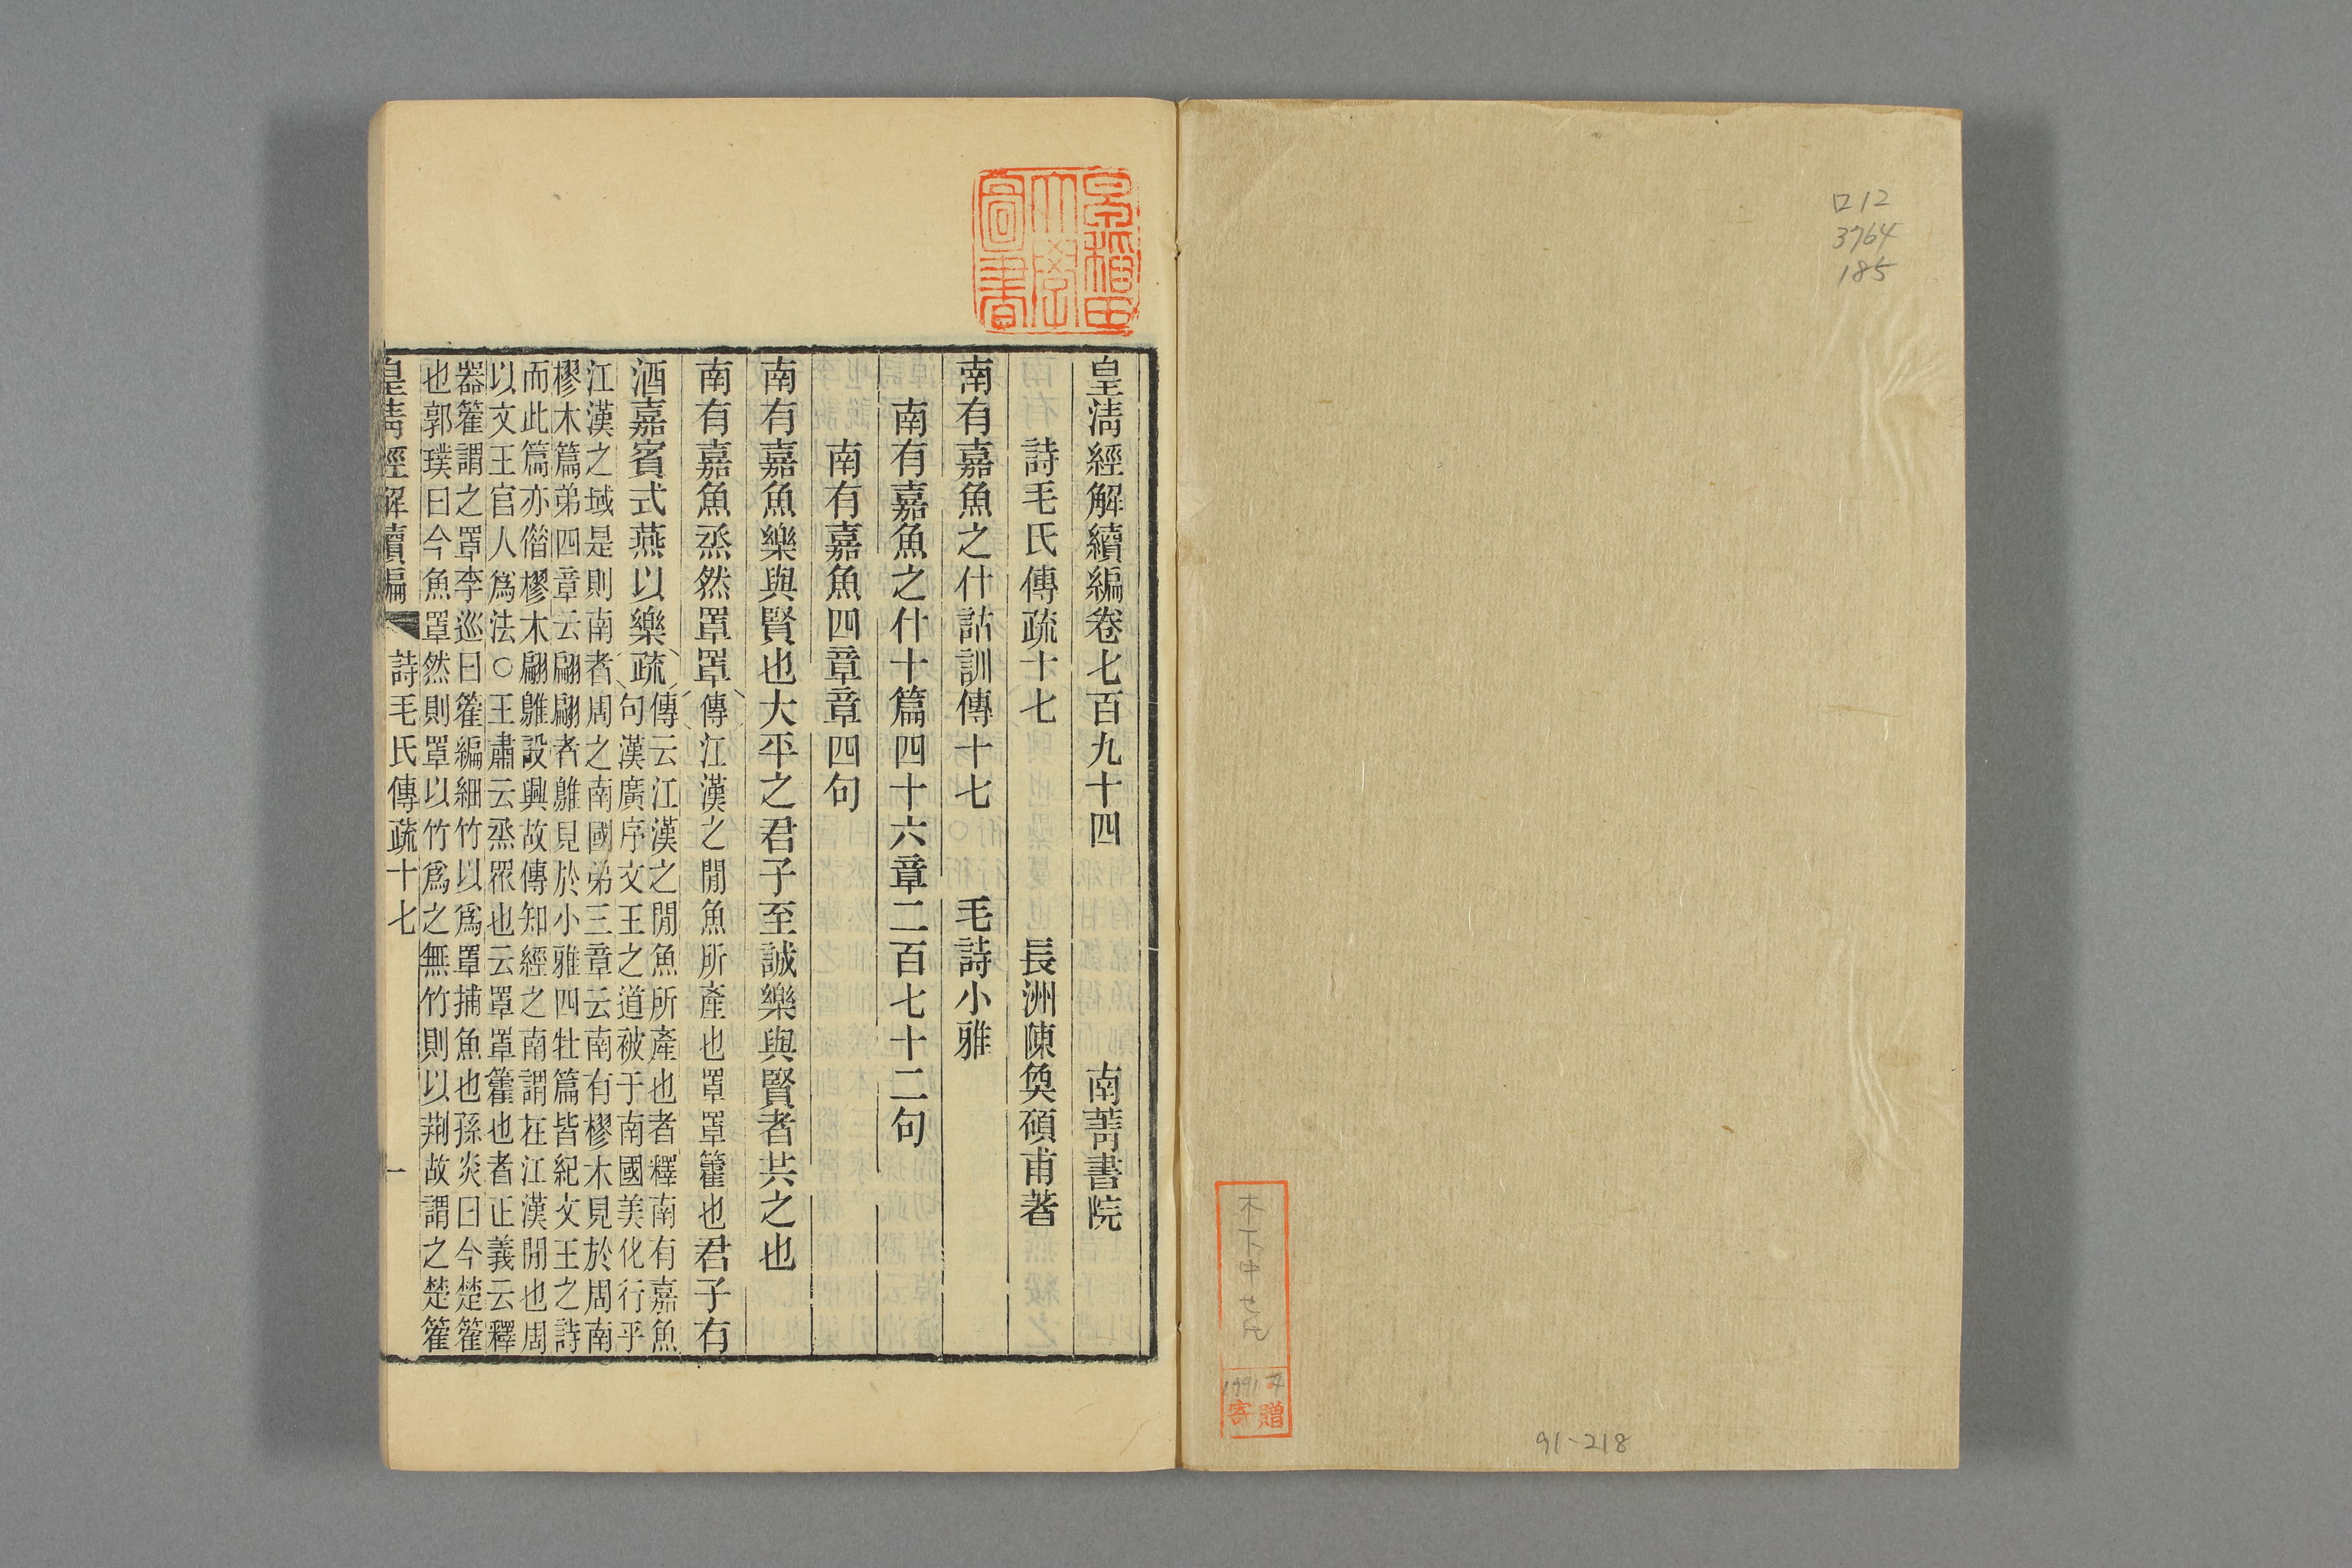 口12
3764
185
木下中
1991年
寄贈
91-218
早稲田
大學
圖書
皇淸經解續編卷七百九十四 南菁書院
詩毛氏傳疏十七 長洲陳奐碩甫著
南有嘉魚之什詁訓傳十七 毛詩小雅
南有嘉魚之什十篇四十六章二百七十二句
南有嘉魚四章章四句
南有嘉魚樂與賢也大平之君子至誠樂與賢者共之也
南有嘉魚烝然罩罩傳江漢之閒魚所產也罩罩籗也君子有
酒嘉賓式燕以樂疏傳云江漢之閒魚所產也者釋南有嘉魚
句漢廣序文王之道被于南國美化行乎
江漢之域是則南者周之南國弟三章云南有樛木見於周南
樛木篇弟四章云翩翩者鵻見於小雅四牡篇皆紀文王之詩
而此篇亦偕樛木翩鵻設興故傳知經之南謂在江漢閒也周
以文王官人爲法○王肅云烝眾也云罩罩籗也者正義云釋
器篧謂之罩李巡曰篧編細竹以爲罩捕魚也孫炎曰今楚篧
也郭璞曰今魚罩然則罩以竹爲之無竹則以荆故謂之楚篧
皇淸經解續編 詩毛氏傳疏十七 一